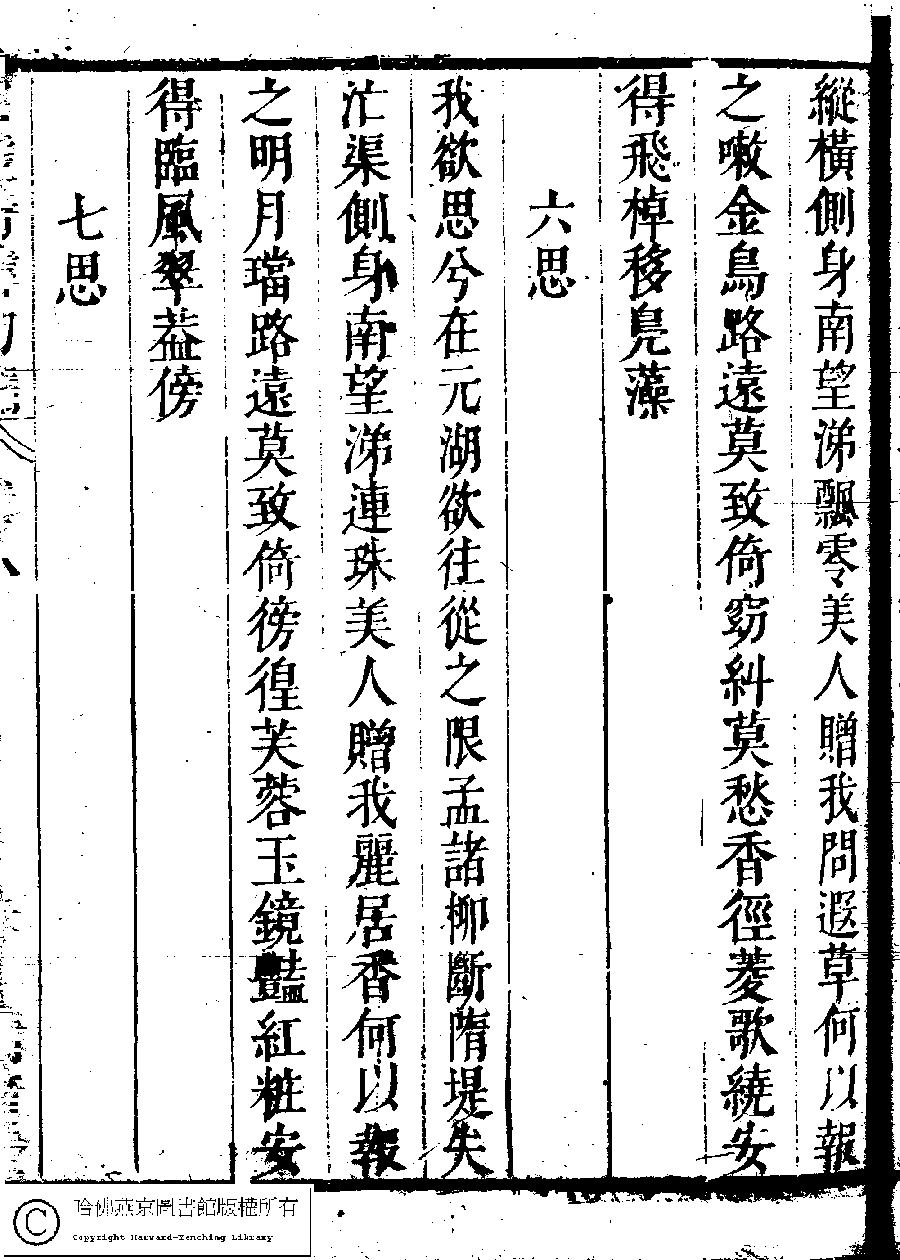 縱橫側身南望涕飄零美人贈我問遐草何以報
之嗽金鳥路遠莫致倚窈糾莫愁香徑菱歌繞安
得飛棹移鳧藻
六思
我欲思兮在元湖欲往從之限孟諸柳斷隋堤失
茫渠側身南望涕連珠美人贈我麗居香何以報
之明月璫路遠莫致倚徬徨芙蓉玉鏡豔紅粧安
得臨風翠葢傍
七思
哈佛燕京圖書館版權所有
Copyright Harvard-Yenching Library